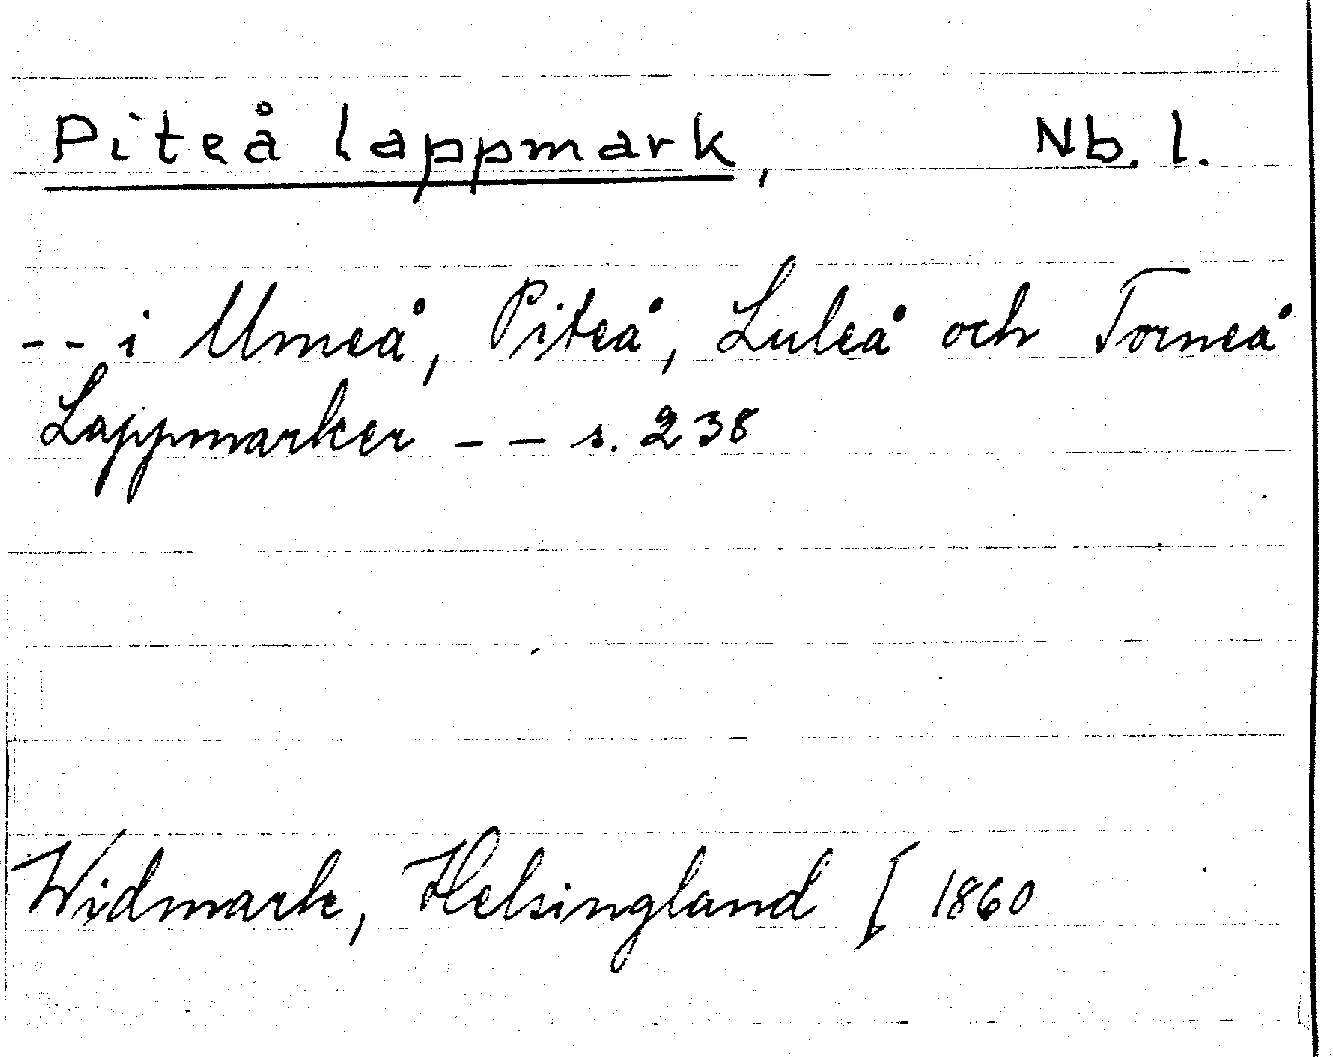 Piteå lappmark, Nb. l.
-- i Umeå, Piteå, Luleå och Torneå
Lappmarker -- s. 238
Widmark, Helsingland [ 1860